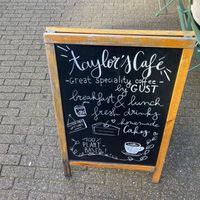 Taylor's Café
-Great Speciality coffee-
by GUST
breakfast & lunch
& fresh drinks
homemade
Cakes
100%
PLANT
BASED